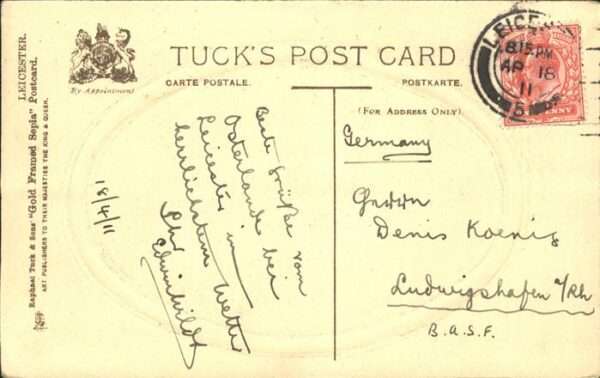 LEICESTER.
Raphael Tuck & Sons' "Gold Framed Sepia" Postcard.
ART PUBLISHERS TO THEIR MAJESTIES THE KING & QUEEN.
By Appointment
TUCK'S POST CARD
CARTE POSTALE.
POSTKARTE.
(FOR ADDRESS ONLY)
18/4/11
Beste Grüße vom
Osterlande bei
Leicester in
herrlichstem Wetter
Ihr
Germany
Herrn
Denis Koenig
Ludwigshafen a/Rh
B.A.S.F.
8.15 PM
AP 18
11